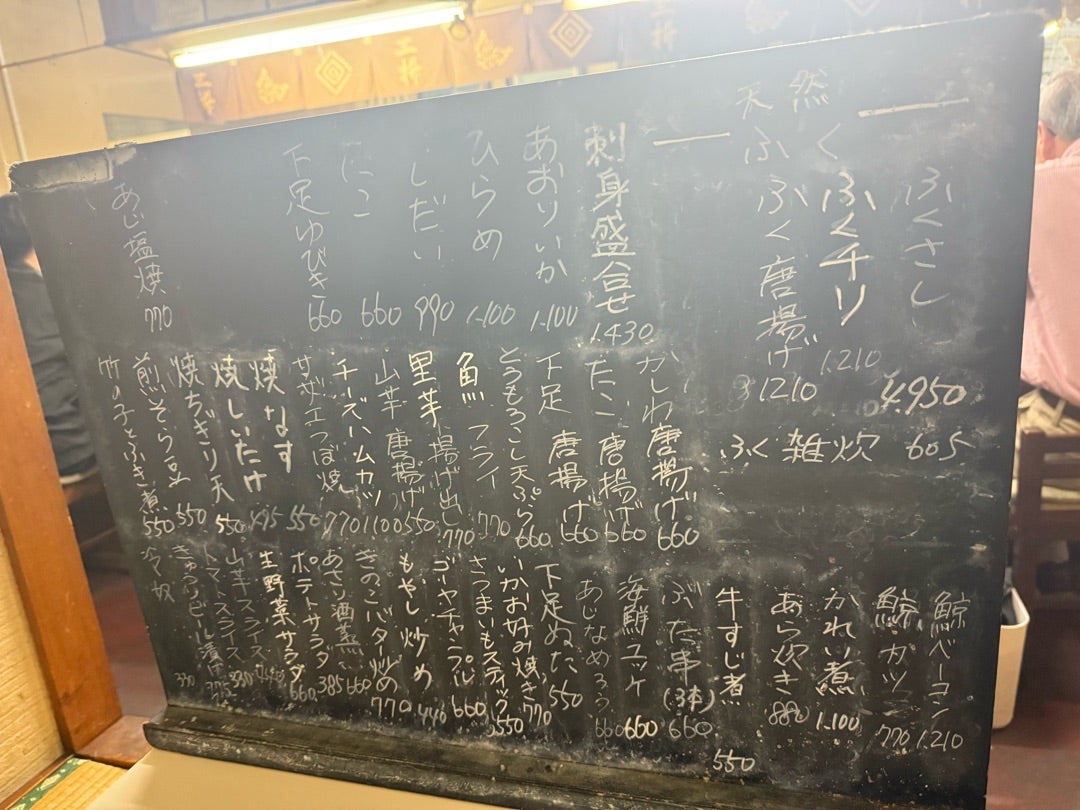 天然
ふくさし 4,950
ふくチリ 1,210
ふく唐揚げ 1210
ふく雑炊 605
刺身盛合せ 1,430
あおりいか 1,100
ひらめ 1,100
しだい 990
たこ 660
下足ゆびき 660
あじ塩焼 770
かしわ唐揚げ 660
たこ唐揚げ 660
下足唐揚げ 660
とうもろこし天ぷら 660
魚フライ 770
里芋揚げ出し 770
山芋唐揚げ 550
チーズハムカツ 1100
サザエつぼ焼 770
焼なす 550
焼しいたけ 495
焼ちぎり天 550
煎りそら豆 550
竹の子とふき煮 550
鯨ベーコン 1.210
鯨カツ 770
かれい煮 1.100
あら炊き 880
牛すじ煮 550
ぶた串(3本) 660
海鮮ユッケ 660
あじなめろう 660
下足ぬた 550
いかお好み焼き 770
さつまいもスティック 550
ゴーヤチャンプル 660
もやし炒め 440
きのこバター炒め 770
あさり酒蒸し 660
ポテトサラダ 385
生野菜サラダ 660
山芋スライス
トマトスライス 330
きゅうりビール漬け 275
冷奴 330